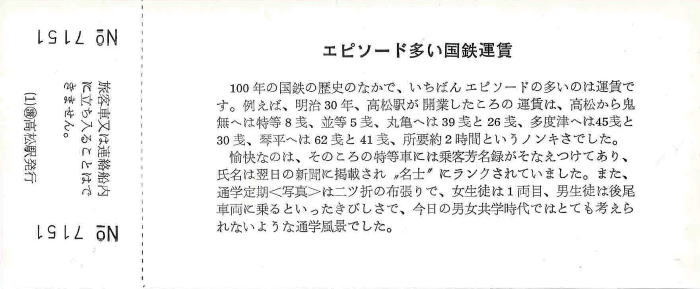 エピソード多い国鉄運賃
100年の国鉄の歴史のなかで、いちばんエピソードの多いのは運賃で
す。例えば、明治30年、高松駅が開業したころの運賃は、高松から鬼
無へは特等8戔、並等5戔、丸亀へは39戔と26戔、多度津へは45戔と
30戔、琴平へは62戔と41戔、所要約2時間というノンキさでした。
愉快なのは、そのころの特等車には乗客芳名録がそなえつけてあり、
氏名は翌日の新聞に掲載され〝名士〟にランクされていました。また、
通学定期<写真>は二ツ折の布張りで、女生徒は1両目、男生徒は後尾
車両に乗るといったきびしさで、今日の男女共学時代ではとても考えら
れないような通学風景でした。
№ 7151
旅客車又は連絡船内
に立ち入ることはで
きません。
(1)高松駅発行
№ 7151